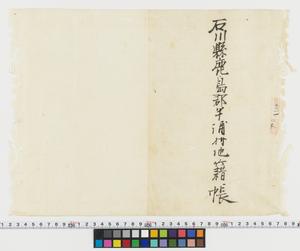 石川縣鹿島郡半浦村地籍帳